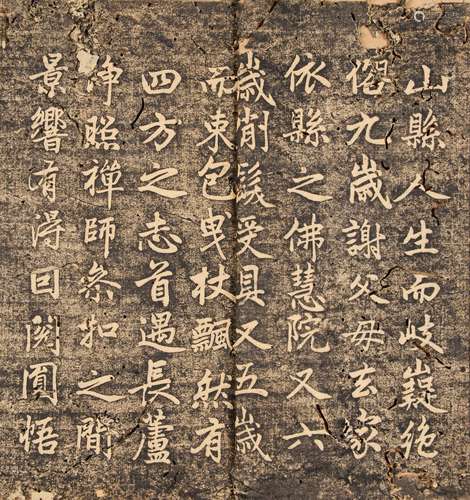 山縣人生而岐嶷絕
俗九歲謝父母去家
依縣之佛慧院又六
歲削髮受具又五歲
而束包曳杖飄然有
四方之志首遇長蘆
淨照禪師參扣之間
景響有得因閱圓悟